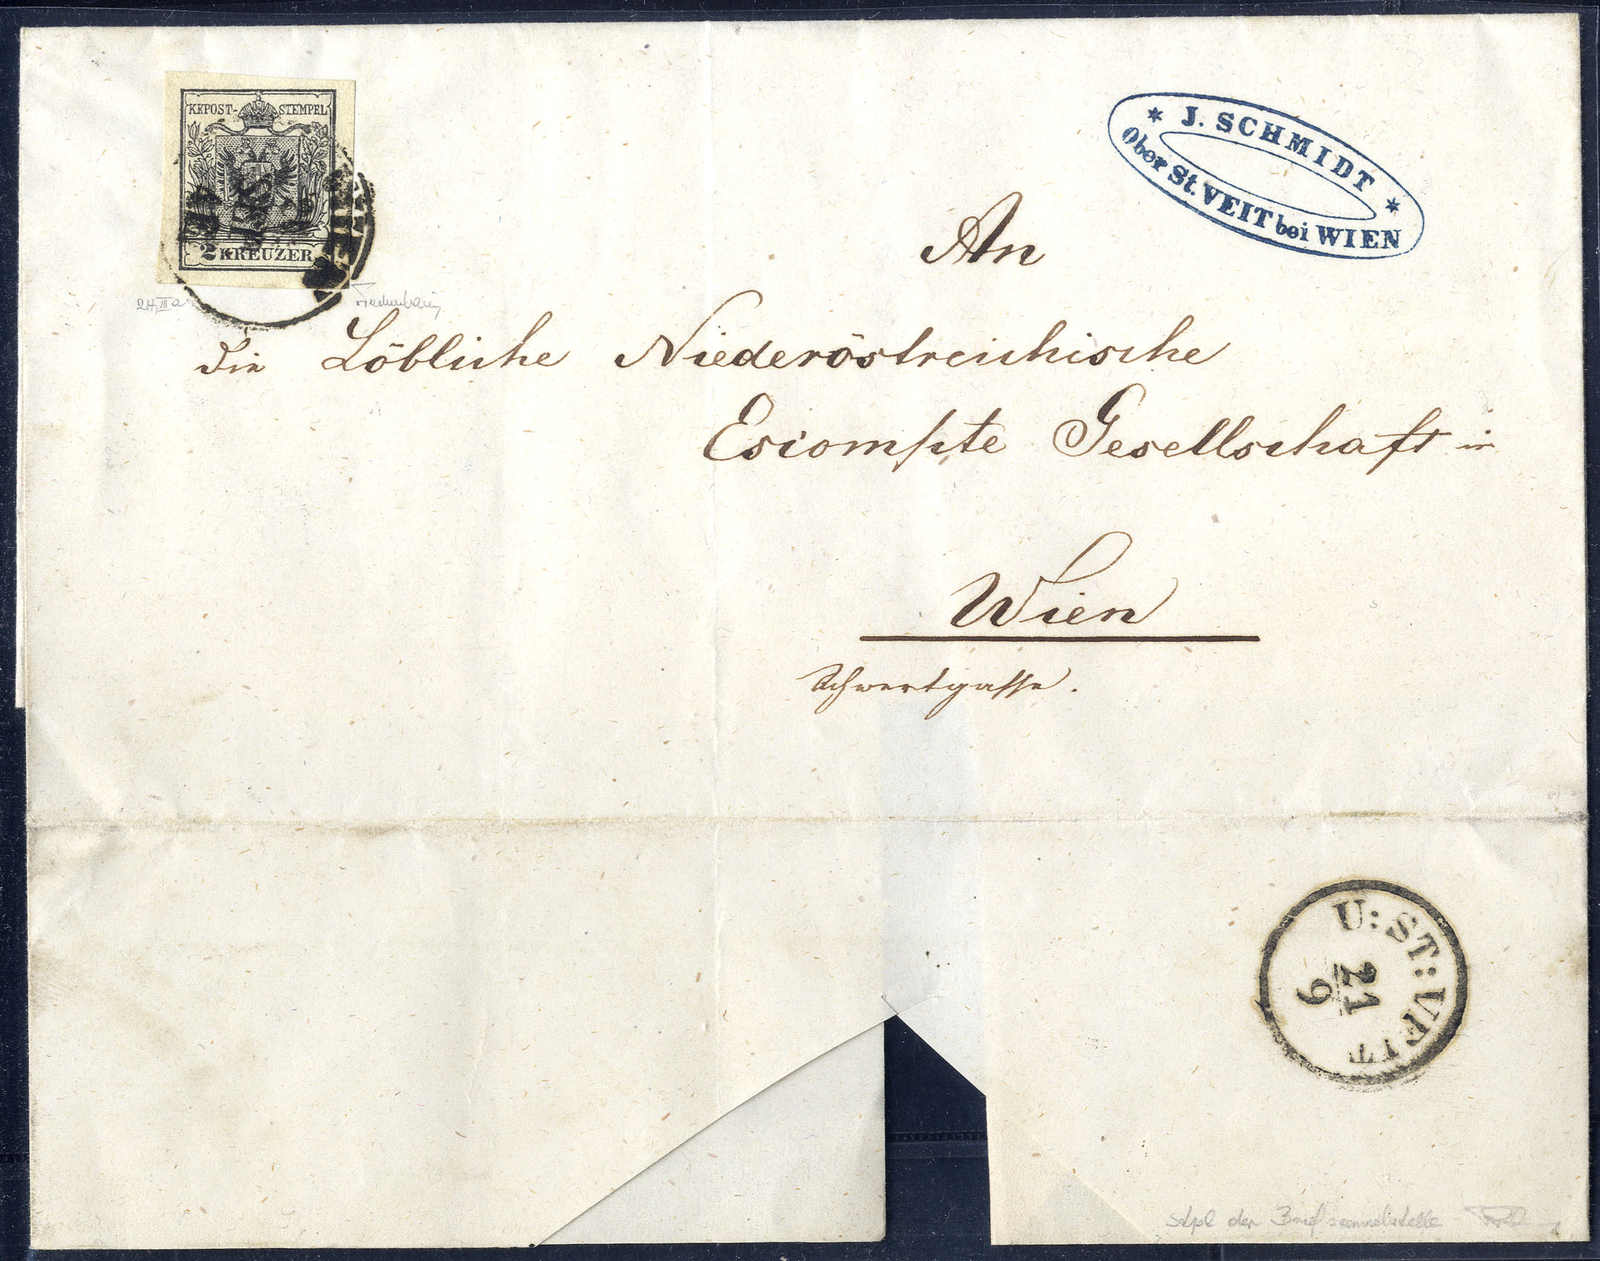 KKPOST-STEMPEL
2 KREUZER
* J. SCHMIDT *
Ober St. VEIT bei WIEN
An
die Löbliche Niederöstreichische
Escompte Gesellschaft in
Wien
Schwertgasse.
U: ST: VEIT
21
9
Stpl der Briefsammelstelle